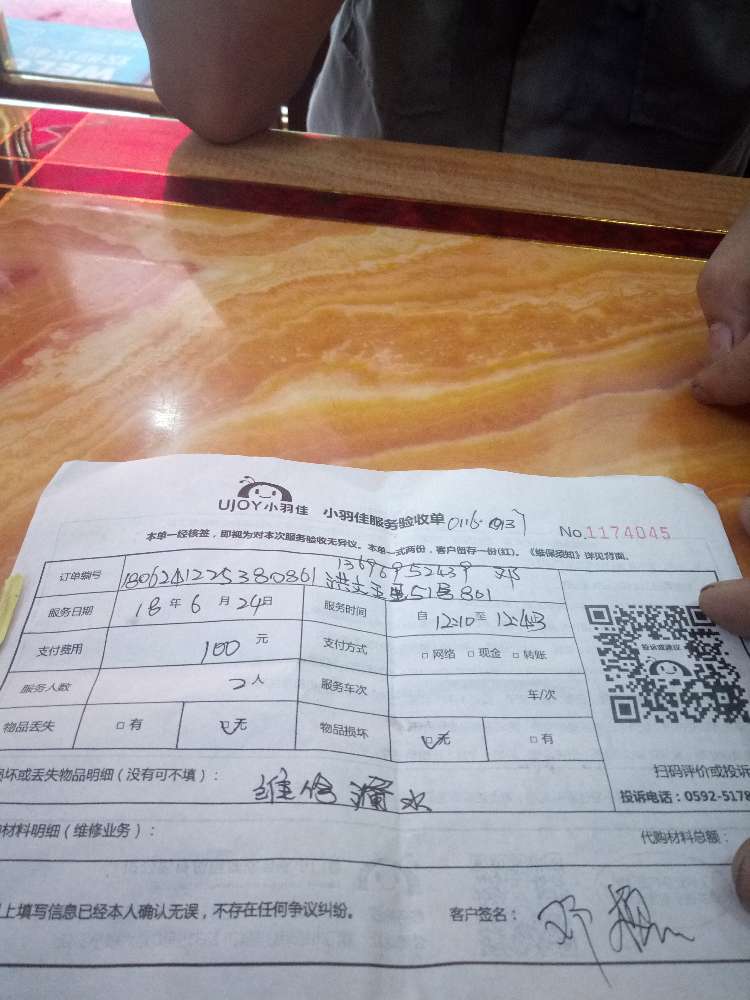 UJOY小羽佳 小羽佳服务验收单 0116.0937
No.1174045
本单一经核签，即视为对本次服务验收无异议。本单一式两份，客户留存一份(红)。《维保须知》详见背面。
13696952439 邓
订单编号 1806241225380861 洪文五里51号801
服务日期 18年6月24日 服务时间 自12:10至12:43
投诉或建议
支付费用 100元 支付方式 □网络 □现金 □转账
服务人数 2人 服务车次 车/次
物品丢失 □有 □无 物品损坏 □无 □有
扫码评价或投诉
损坏或丢失物品明细（没有可不填）： 维修漏水
投诉电话：0592-5178
材料明细（维修业务）： 代购材料总额：
上填写信息已经本人确认无误，不存在任何争议纠纷。 客户签名： 邓